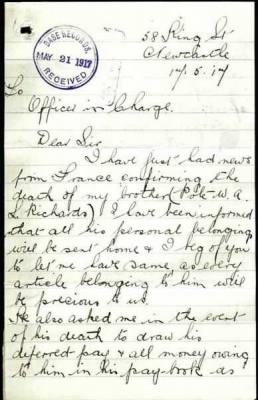 58 King St
Newcastle
17.5.17
BASE RECORDS.
MAY 21 1917
RECEIVED
To
Officer in Charge.
Dear Sir
I have just had news
from France confirming the
death of my brother (Pte W. A.
L Richards) I have been informed
that all his personal belonging
will be sent home & I beg of you
to let me have same as every
article belonging to him will
be precious to us.
He also asked me in the event
of his death to draw his
deferred pay & all money owing
to him in his pay-book as